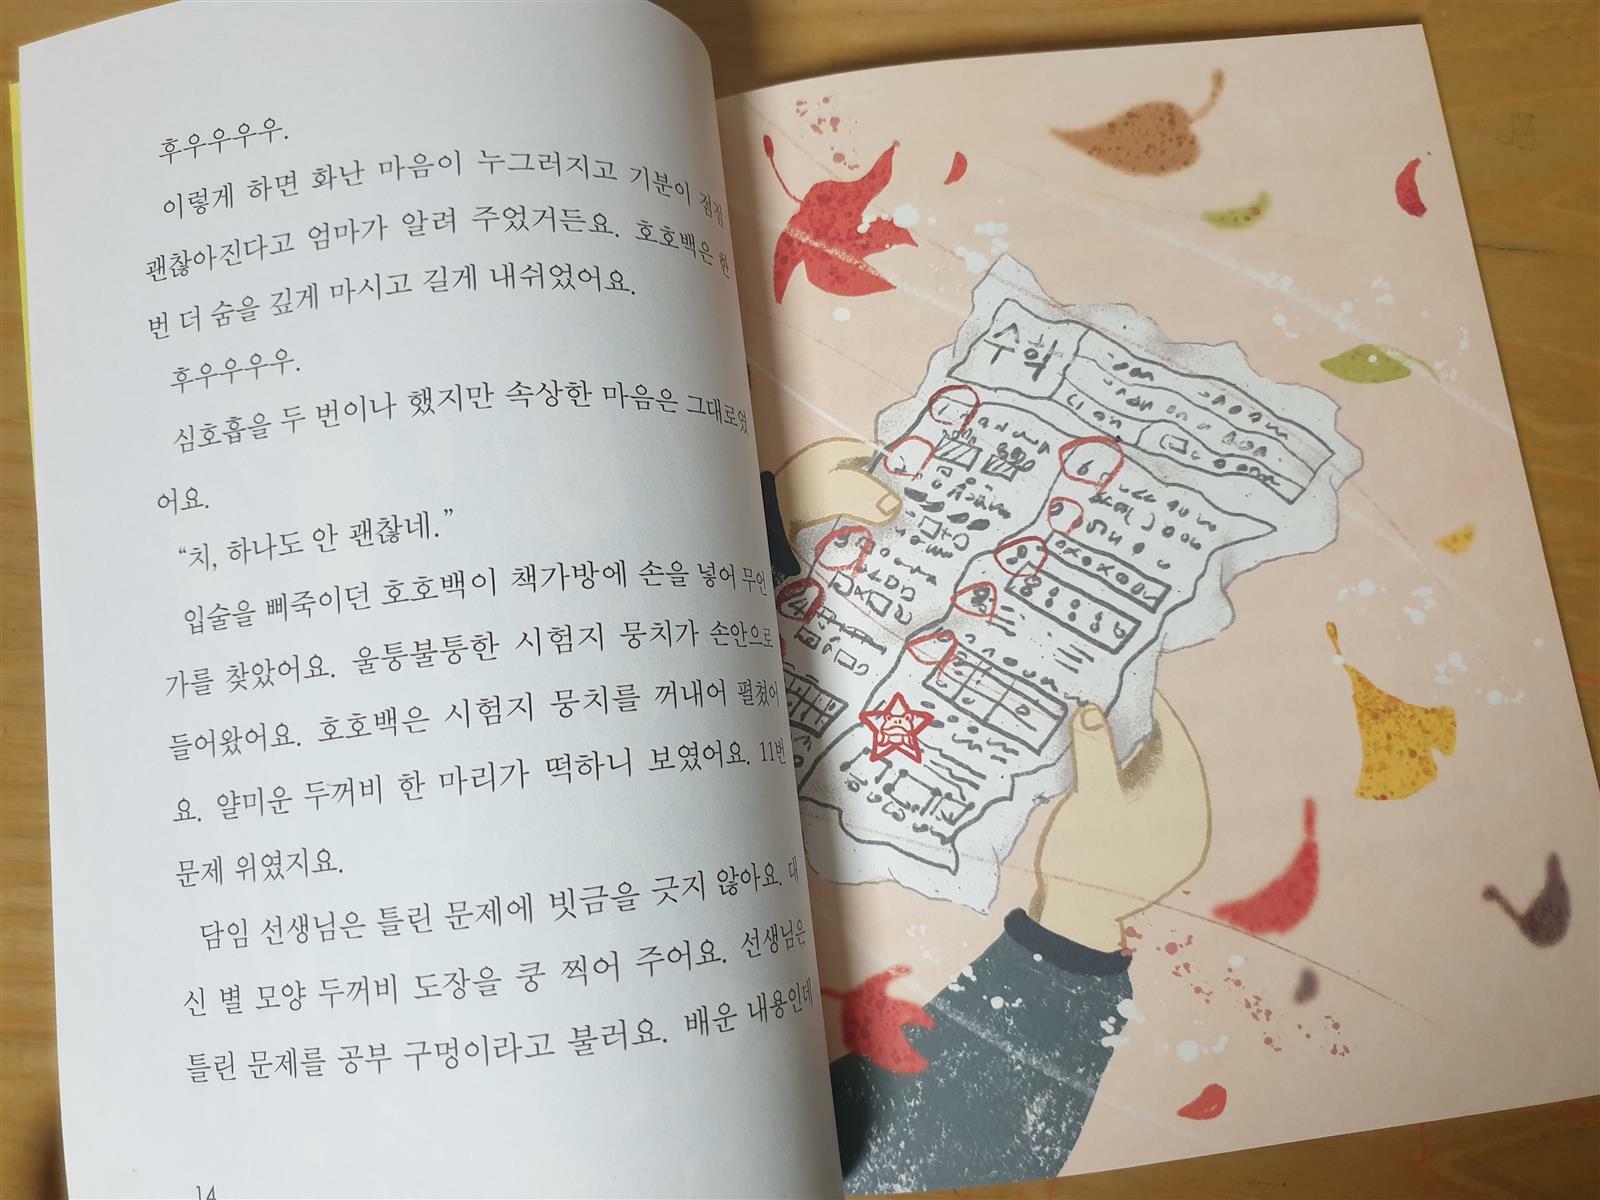 후우우우우.
이렇게 하면 화난 마음이 누그러지고 기분이 점점
괜찮아진다고 엄마가 알려 주었거든요. 호호백은 한
번 더 숨을 깊게 마시고 길게 내쉬었어요.
후우우우우.
심호흡을 두 번이나 했지만 속상한 마음은 그대로였
어요.
“치, 하나도 안 괜찮네.”
입술을 삐죽이던 호호백이 책가방에 손을 넣어 무언
가를 찾았어요. 울퉁불퉁한 시험지 뭉치가 손안으로
들어왔어요. 호호백은 시험지 뭉치를 꺼내어 펼쳤어
요. 얄미운 두꺼비 한 마리가 떡하니 보였어요. 11번
문제 위였지요.
담임 선생님은 틀린 문제에 빗금을 긋지 않아요. 대
신 별 모양 두꺼비 도장을 쿵 찍어 주어요. 선생님은
틀린 문제를 공부 구멍이라고 불러요. 배운 내용인데
14
수학
1
4
6